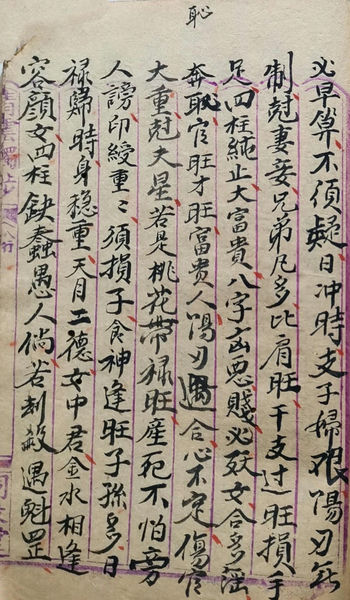 恥
必早算不須疑日冲時支子婦狠陽刃無
制尅妻妾兄弟尼多比肩旺干支过旺損手
足四柱純止大富貴八字凶恶賤必殁女合多滛
奔耻官旺才旺富贵人陽刃遇合心不定傷官
大重尅夫星若是桃花帶禄旺產死不怕旁
人謗印綬重〻須損子食神逢旺子孫多日
禄歸時身穏重天月二德女中君金水相逢
容顔女四柱缺蠢愚人倘若制殺遇魁罡